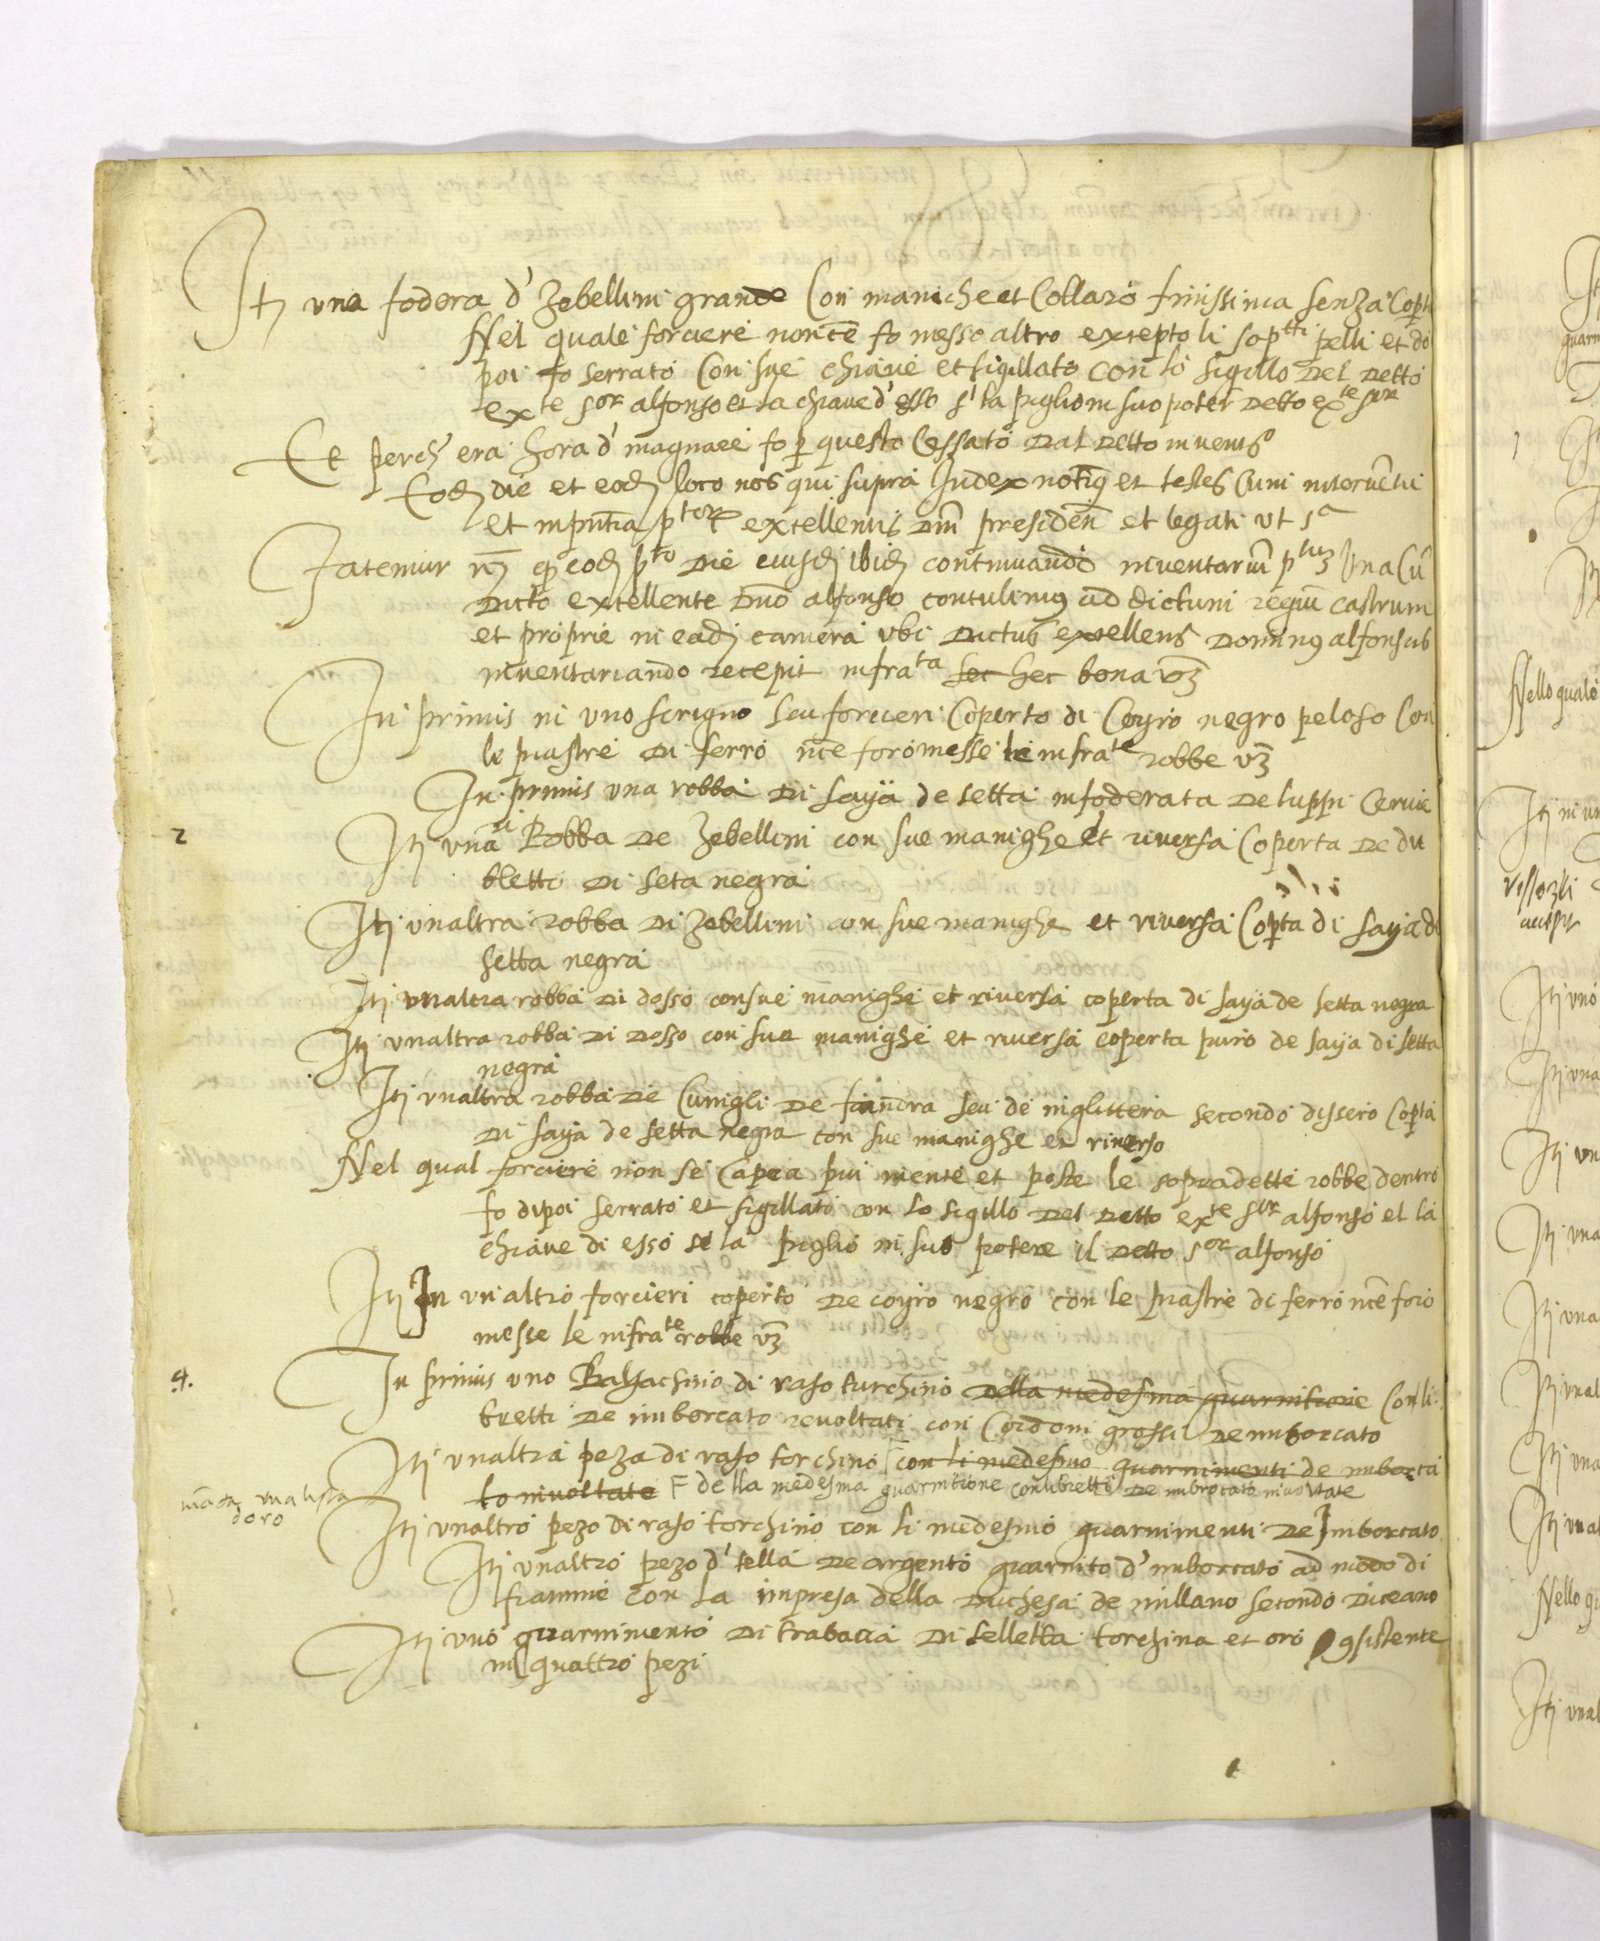 Itj una fodera d' Zebellini grande Con maniche et Collaro finissima senza Copta
Nel quale forciere nonce fo messo altro excepto li sop.tti pelli et do
poi fo serrato Con sue chiave et sigillato con lo sigillo del detto
ex.te s.or alfonso et la chiave d' esso si la piglio in suo poter detto ex.te s.or
Et perch' era hora d' magnare fo p questo Cessato dal detto invent.o
Eod die et eod loco nos qui supra Judex not.s et testes Cum interventu
et in pntia p.tor excellentis dni presiden et legati ut s.a
Fatemur q eod p.to die eiusd ibid continuando inventarium p.tum Una Cu
dicto excellente dno alfonso contulimus ad dictum regiu castrum
et proprie in ead camera ubi dictus excellens dominus alfonsus
inventariando recepit infra.ta hec hec bona vz
In primis in uno scrigno seu forcieri Coperto di Coyro negro peloso Con
le piastre di ferro nce foro messe le infra.te robbe vz
In primis una robba di saya de setta infoderata de luppi Cervie
2 Itj una Robba de Zebellini con sue manighe et riversa Coperta de du
bletto di seta negra
Itj unaltra robba di Zebellini con sue manighe et riversa Copta di saya d
setta negra
Itj unaltra robba di dosso con sue manighe et riversa coperta di saya de setta negra
Itj unaltra robba di dosso con sue manighe et riversa coperta puro de saya di setta
negra
Itj unaltra robba de Cunigli de fiandra seu de inglitterra secondo dissero Copta
di saya de setta negra con sue manighe et riverso
Nel qual forciere non se Capea piu niente et poste le sopradette robbe dentro
fo dipoi serrato et sigillato con lo sigillo del detto ex.te s.or alfonso et la
chiave di esso se la piglio in suo potere il detto s.or alfonso
Itj In un altro forcieri coperto de coyro negro con le piastre di ferro nce foro
messe le infra.te robbe vz
4. In primis uno Baldachino di raso turchino della medesma guarnitione Con li
bretti de imborcato revoltati con Cordoni grossi de imborcato
Itj unaltra peza di raso torchino con li medesmo guarnimenti de imborca
to rivoltate F della medesma guarnitione con libretti de imbrocato rivoltate
manca una lista
doro
Itj unaltro pezo di raso torchino con li medesmo guarnimenti de Imborcato
Itj unaltro pezo d' tella de argento guarnito d' imborcato ad modo di
fiamme con la impresa della duchesa de millano secondo diceano
Itj uno guarnimento di trabacca di telletta torchina et oro Consistente
in quattro pezi